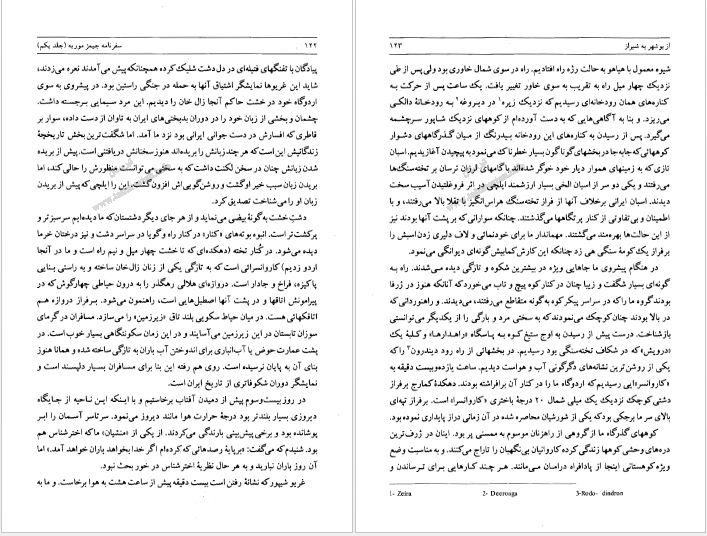 ۱۲۲
سفرنامه جیمز موریه (جلد یکم)
پیادگان با تفنگهای فتیله‌ای در دل دشت شلیک کرده همچنانکه پیش می‌آمدند نعره می‌زدند،
شاید این غریوها نمایشگر اشتیاق آنها به حمله در جنگی راستین بود. در پیشروی به سوی
اردوگاه خود در خشت حاکم آنجا زال خان را دیدیم. این مرد سیمایی برجسته داشت.
چشمان و بخشی از زبان خود را در دوران بدبختی‌های ایران به تاوان از دست داده، سوار بر
قاطری که افسارش در دست جوانی ایرانی بود نزد ما آمد. اما شگفت‌ترین بخش تاریخچهٔ
زندگانیش این است که هر چند زبانش را بریده‌اند هنوز سخنانش دریافتنی است. پیش از بریده
شدن زبانش چنان در سخن لکنت داشت که به سختی می‌توانست منظورش را حالی کند، اما
بریدن زبان سبب خیر او گشت و روشن‌گویی‌اش افزون گشت. این را ایلچی که پیش از بریدن
زبان او را می‌شناخت تصدیق کرد.
دشت خشت به گونهٔ بیضی می‌نماید و از هر جای دیگر دشتستان که ما دیده‌ایم سرسبزتر و
پرکشت‌تر است. انبوه بوته‌های «کنار» در کنار راه و گویا در سراسر دشت و نیز درختان خرما
دیده می‌شود. در کُنار تخته (دهکده‌ای که تا خشت چهار میل و نیم راه است و ما در آنجا
اردو زدیم) کاروانسرائی است که به تازگی یکی از زنان زال‌خان ساخته و به راستی بنایی
پاکیزه، فراخ و جادار است. دروازه‌ای هلالی رهگذر را به درون حیاطی چهارگوش که در
پیرامونش اتاقها و در پشت آنها اصطبل‌هایی است، راهنمون می‌شود. برفراز دروازه هم
اتاقکهائی هست. در میان حیاط سکویی بلند تاق «زیرزمین» را می‌سازد. مسافران در گرمای
سوزان تابستان در این زیرزمین می‌آسایند و در این زمان سکونتگاهی بسیار خوب است. در
پشت عمارت حوض یا آب‌انباری برای اندوختن آب باران به تازگی ساخته شده و همانا هنوز
بنای آن به پایان نرسیده است. روی هم رفته این بنا برای مسافران بسیار دلپسند است و
نمایشگر دوران شکوفاتری از تاریخ ایران است.
در روز بیست‌وسوم پیش از دمیدن آفتاب برخاستیم و با اینکه این ناحیه از جایگاه
دیروزی بسیار بلندتر بود درجهٔ حرارت هوا مانند دیروز می‌نمود. سرتاسر آسمان را ابر
پوشانده بود و برخی پیش‌بینی بارندگی می‌کردند. از یکی از «منشیان» ما که اخترشناس هم
بود. شنیدم که می‌گفت: «برپایهٔ رصدهائی که کرده‌ام اگر خدا بخواهد باران خواهد آمد.» اما
آن روز باران نبارید و به هر حال نظریهٔ اخترشناس در خور بحث نبود.
غریو شیپور که نشانهٔ رفتن است بیست دقیقه پیش از ساعت هشت به هوا برخاست. و ما به
از بوشهر به شیراز
۱۲۳
شیوه معمول با هیاهو به حالت رژه راه افتادیم. راه در سوی شمال خاوری بود ولی پس از طی
نزدیک چهار میل راه به تقریب به سوی خاور تغییر یافت. یک ساعت پس از حرکت به
کناره‌های همان رودخانه‌ای رسیدیم که نزدیک زیره۱ در دیروغه۲ به رودخانهٔ دالکی
می‌ریزد. و بنا به آگاهی‌هایی که به دست آورده‌ام از کوههای نزدیک شاپور سرچشمه
می‌گیرد. پس از رسیدن به کناره‌های این رودخانه بیدرنگ از میان گذرگاههای دشوار
کوههائی که جابه‌جا در بخشهای گوناگون بسیار خطرناک می‌نمود به پیچیدن آغازیدیم. اسبان
تازی که به زمینهای هموار دیار خود خوگر شده‌اند باگامهای لرزان ترسان بر تخته‌سنگها
می‌رفتند و یکی دو سر از اسبان الخی بسیار ارزشمند ایلچی در اثر فروغلتیدن آسیب سخت
دیدند. اسبان ایرانی برخلاف آنها از فراز تخته‌سنگ هراس‌انگیز با تقلا بالا می‌رفتند، و با
اطمینان و بی‌تفاوتی از کنار پرتگاهها می‌گذشتند. چنانکه سوارانی که بر پشت آنها بودند نیز
از این حالت‌ها بهره‌مند می‌گشتند. مهماندار ما برای خودنمائی و لاف دلیری زدن اسبش را
برفراز یک کومهٔ سنگی هی زد چنانکه این کارش کمابیش گونه‌ای دیوانگی می‌نمود.
در هنگام پیشروی ما جاهایی ویژه در بیشترین شکوه و تازگی دیده می‌شدند. راه به
گونه‌ای بسیار شگفت و زیبا چنان در کنار کوه پیچ و تاب می‌خورد که آنانکه هنوز در ژرفا
بودند گروه ما را که در سراسر پیکر کوه به گونه متقاطع می‌رفتند، می‌دیدند. و راهنوردانی که
در بالا بودند چنان کوچک می‌نمودند که به سختی مرد و بارگی را از یکدیگر می‌توانستی
بازشناخت. درست پیش از رسیدن به اوج ستیغ کوه به پاسگاه «راهدارها» و کلبهٔ یک
«درویش» که در شکاف تخته‌سنگی بود رسیدیم. در بخشهائی از راه رود دیندرون۳ را که
یکی از روشن‌ترین نشانه‌های دگرگونی آب و هواست دیدیم. ساعت یازده و بیست دقیقه به
«کاروانسرا»یی رسیدیم که اردوگاه ما را در کنار آن برافراشته بودند. دهکدهٔ کمارج برفراز
دشتی کوچک نزدیک یک میلی شمال ۲۰ درجهٔ باختری «کاروانسرا» است. برفراز تپه‌ای
بالای سر ما برجکی بود که یکی از شورشیان محاصره شده در آن زمانی دراز پایداری نموده بود.
کوههای گذرگاه ما از گروهی از راهزنان موسوم به ممسنی پر بود. اینان در ژرف‌ترین
دره‌های وحشی کوهها زندگی کرده کاروانیان بی‌نگهبان را تاراج می‌کنند. و به مناسبت وضع
ویژه کوهستانی اینجا از پادافراه درامان می‌مانند. هر چند کارهایی برای ترساندن و
1- Zeira 2- Deeroaga 3-Rodo- dindron